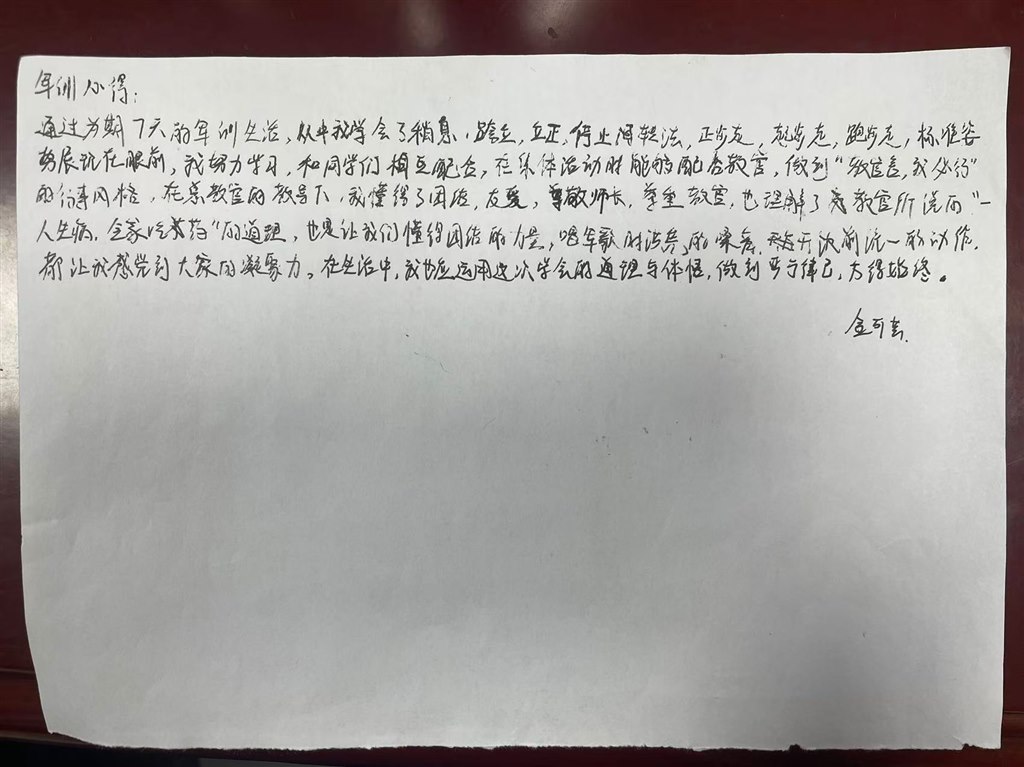 军训心得:
通过为期7天的军训生活,从中我学会了稍息,跨立,立正,停止间转法,正步走,起步走,跑步走,标准姿
势展现在眼前,我努力学习,和同学们相互配合,在集体活动时能够配合教官,做到"教官言,我必行"
的行事风格,在亲教官的教导下,我懂得了团结,友爱,尊敬师长,尊重教官,也理解了亲教官所说的"一
人生病,全家吃药"的道理,也是让我们懂得团结的力量,唱军歌时的嗓音,开饭前统一的动作,
都让我感觉到大家的凝聚力。在生活中,我也应运用这次学会的道理与体悟,做到严于律己,方得始终。
金可